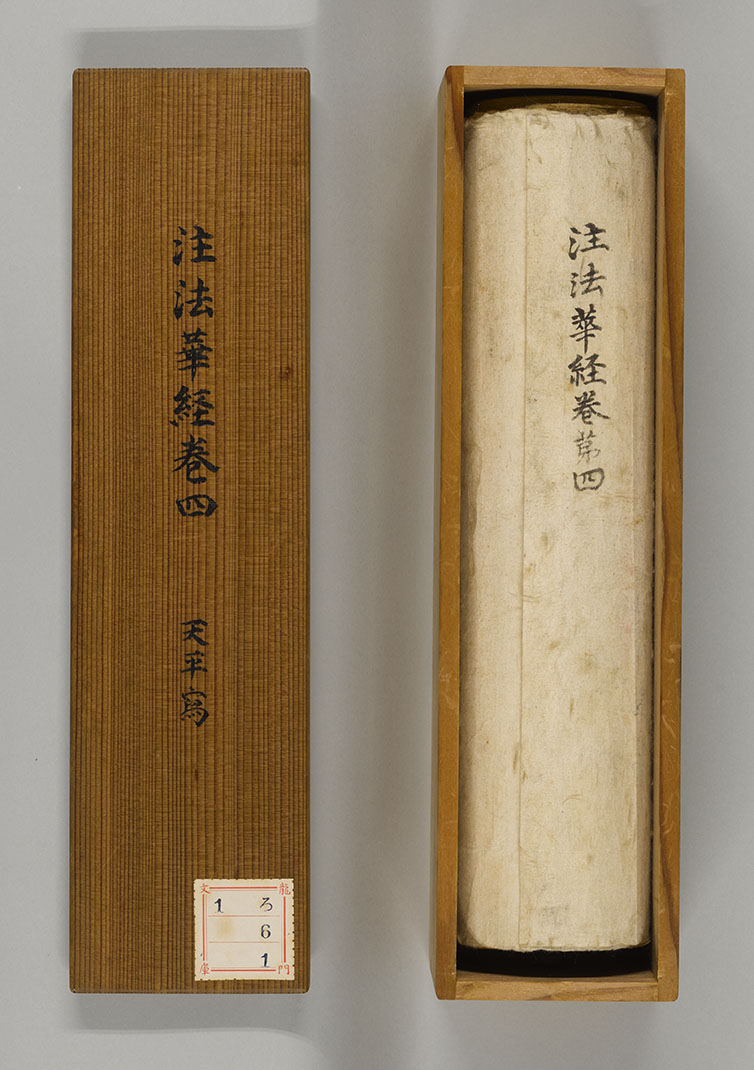 注法華経巻四
天平寫
龍門文庫
ろ 1
6
1
注法華経巻第四